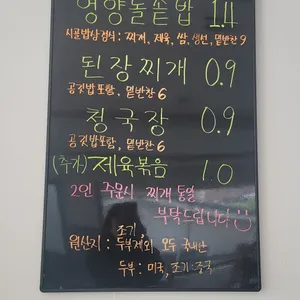 영양돌솥밥 1.4
시골밥상정식: 찌개, 제육, 쌈, 생선, 밑반찬 9
된장찌개 0.9
공깃밥포함, 밑반찬 6
청국장 0.9
공깃밥포함, 밑반찬 6
(추가) 제육볶음 1.0
2인 주문시 찌개 통일
부탁드립니다
조기,
원산지: 두부제외 모두 국내산
두부: 미국, 조기: 중국